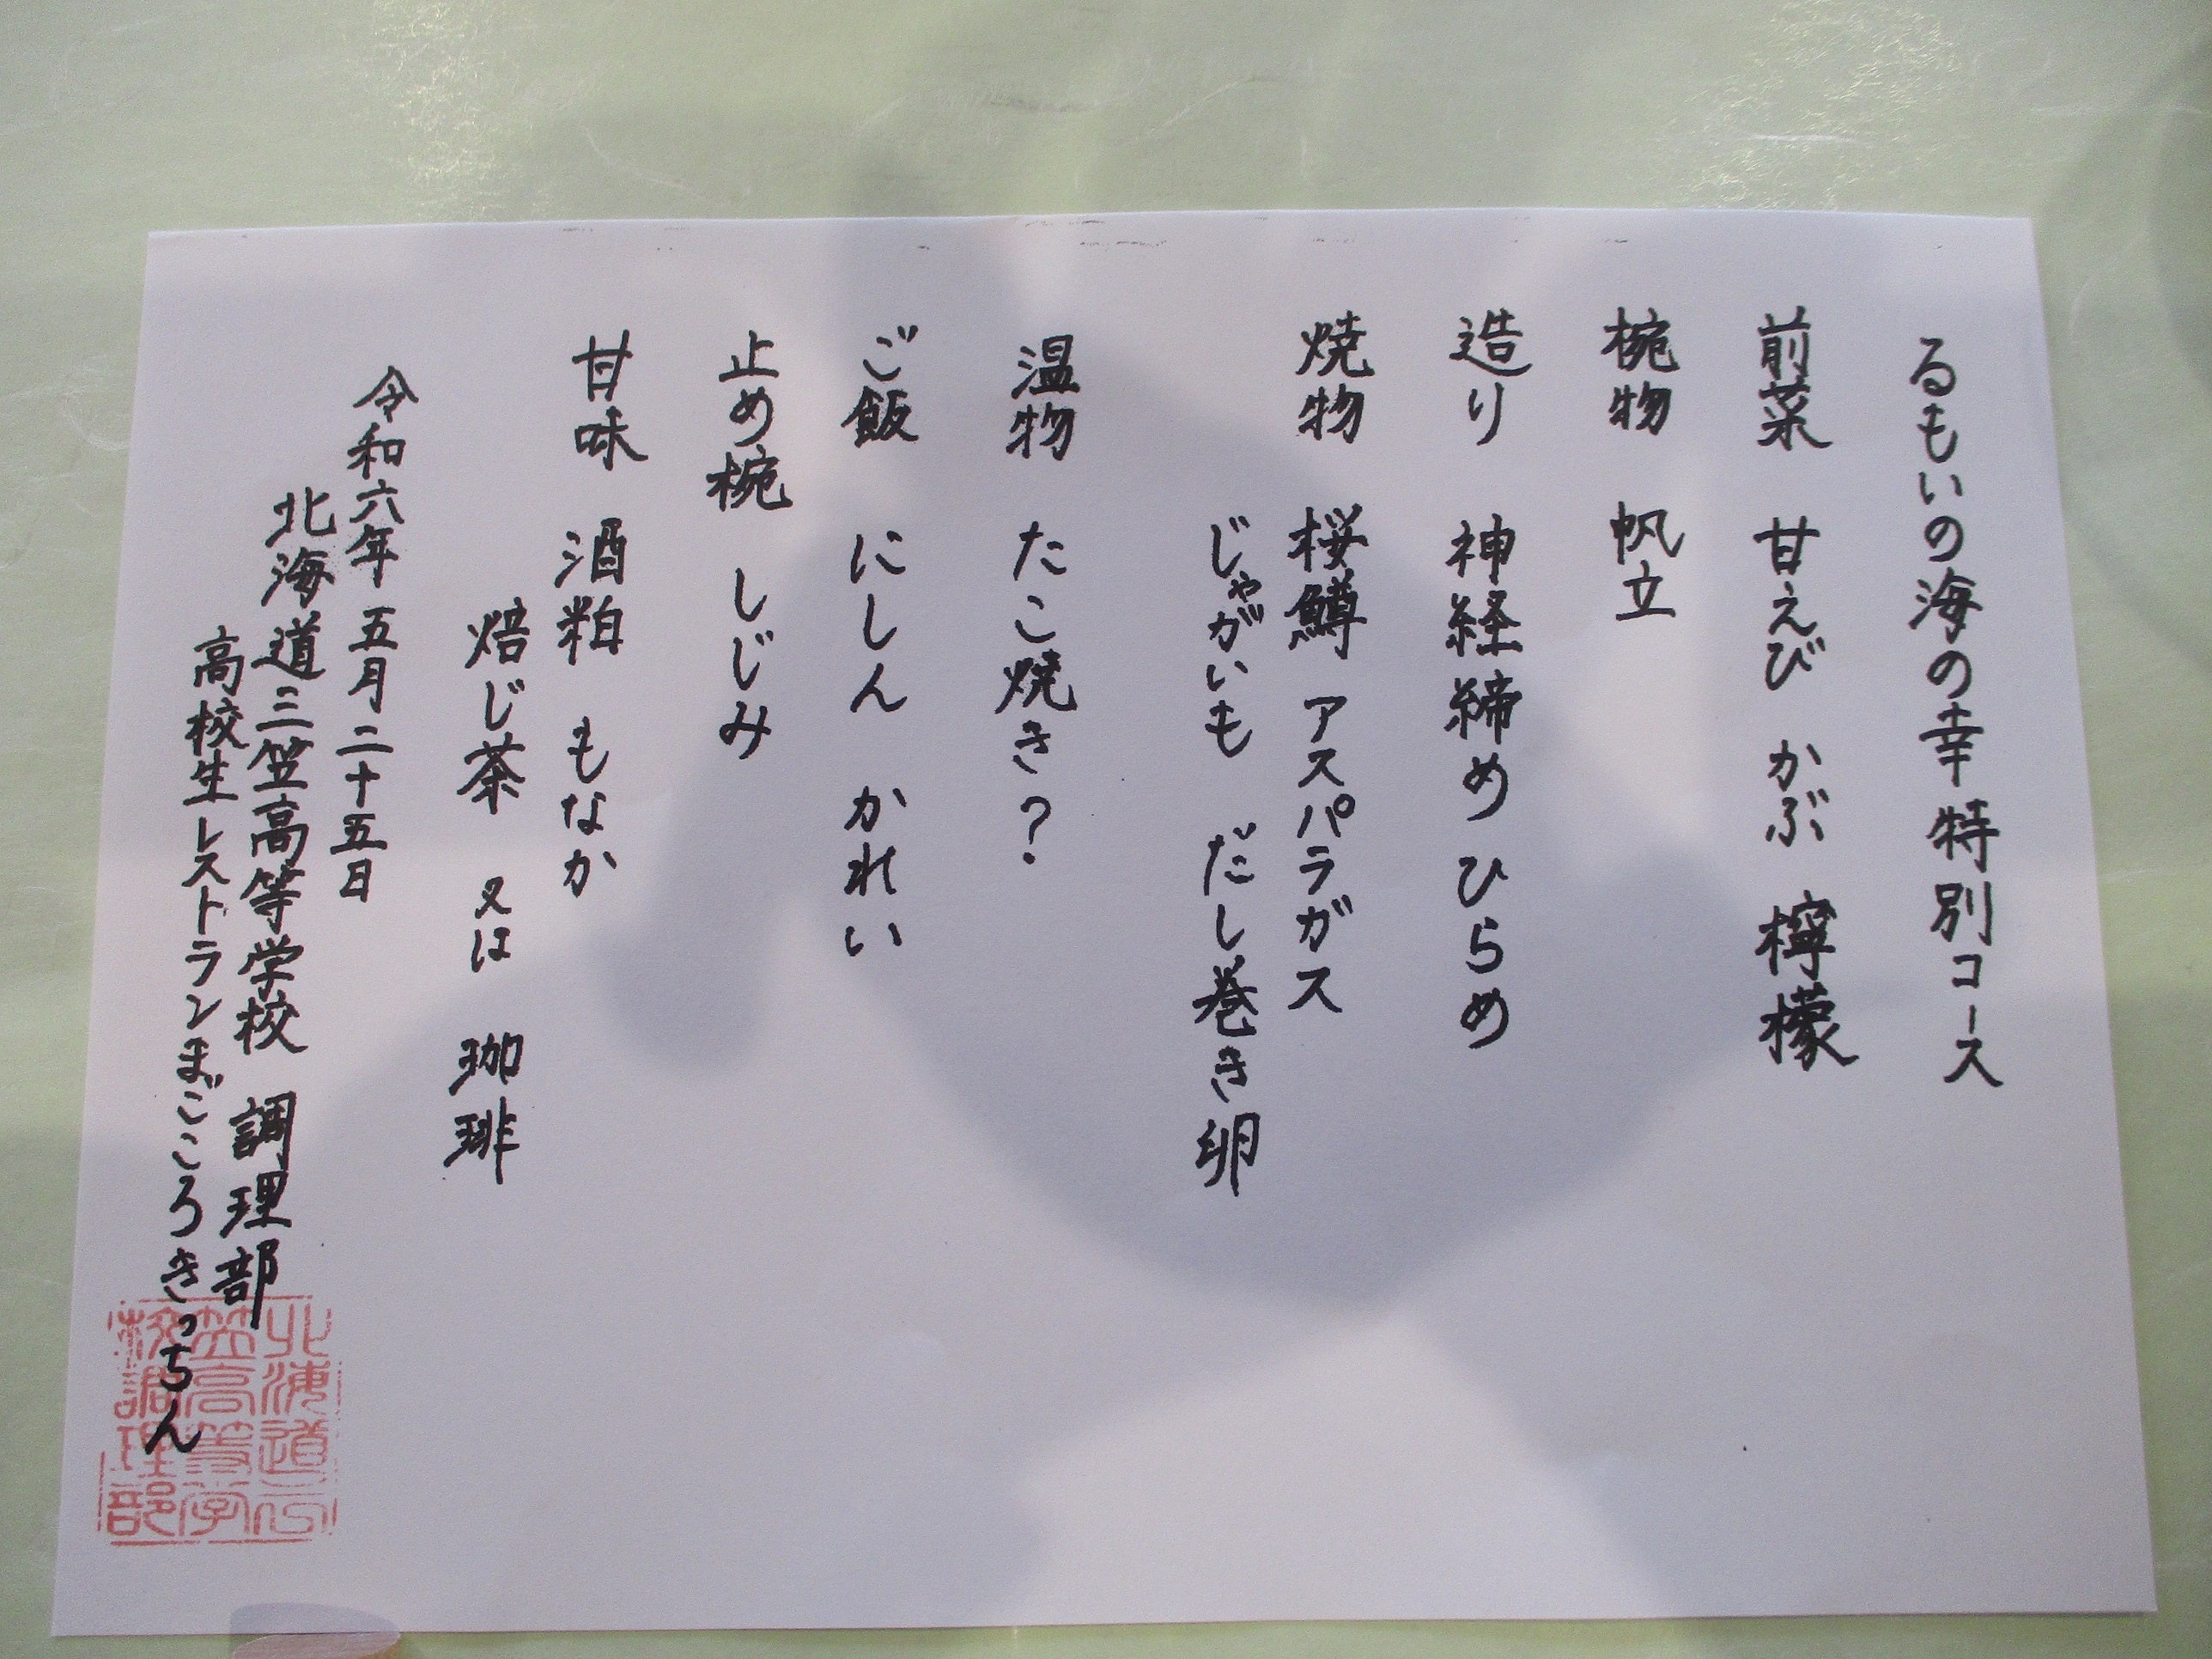 るもいの海の幸特別コース
前菜 甘えび かぶ 檸檬
椀物 帆立
造り 神経締めひらめ
焼物 桜鱒 アスパラガス
じゃがいも だし巻き卵
温物 たこ焼き？
ご飯 にしん かれい
止め椀 しじみ
甘味 酒粕 もなか
焙じ茶 又は 珈琲
令和六年 五月二十五日
北海道三笠高等学校 調理部
高校生レストランまごころきっちん
北海道三
笠高等学
校調理部